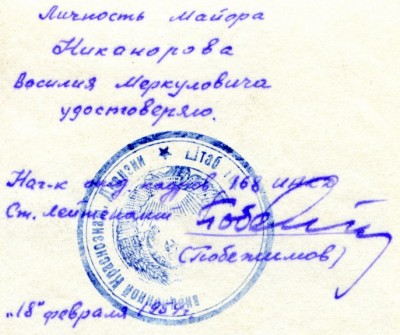 Личность Майора
Никанорова
Василия Меркуловича
удостоверяю.
Нач-к отд. кадров 168 
Ст. Лейтенант
(Побежимов)
"18" февраля 195
Штаб
дивизии